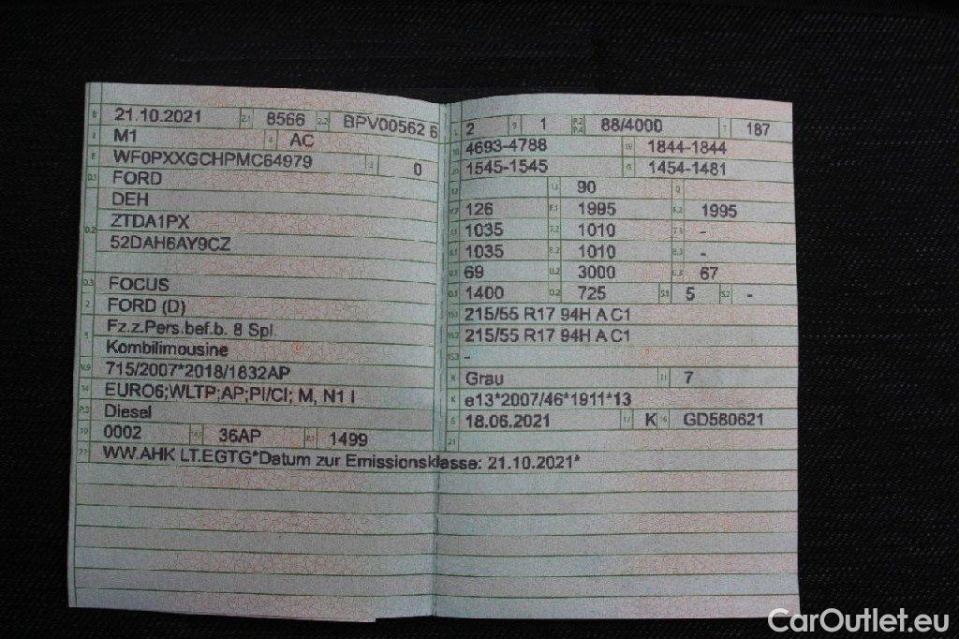 B 21.10.2021 2.1 8566 2.2 BPV00562 6
J M1 4 AC
E WF0PXXGCHPMC64979 3 0
D.1 FORD
DEH
D.2 ZTDA1PX
52DAH6AY9CZ
D.3 FOCUS
2 FORD (D)
5 Fz.z.Pers.bef.b. 8 Spl.
Kombilimousine
V.9 715/2007*2018/1832AP
14 EURO6;WLTP;AP;PI/CI; M, N1 I
P.3 Diesel
10 0002 14.1 36AP P.1 1499
22 WW.AHK LT.EGTG*Datum zur Emissionsklasse: 21.10.2021*
L 2 9 1 P.2 P.4 88/4000 T 187
18 4693-4788 19 1844-1844
20 1545-1545 G 1454-1481
12 13 90 Q
V.7 126 F.1 1995 F.2 1995
7.1 1035 7.2 1010 7.3 -
8.1 1035 8.2 1010 8.3 -
U.1 69 U.2 3000 U.3 67
O.1 1400 O.2 725 S.1 5 S.2 -
15.1 215/55 R17 94H A C1
15.2 215/55 R17 94H A C1
15.3 -
R Grau 11 7
K e13*2007/46*1911*13
6 18.06.2021 17 K 16 GD580621
21
CarOutlet.eu